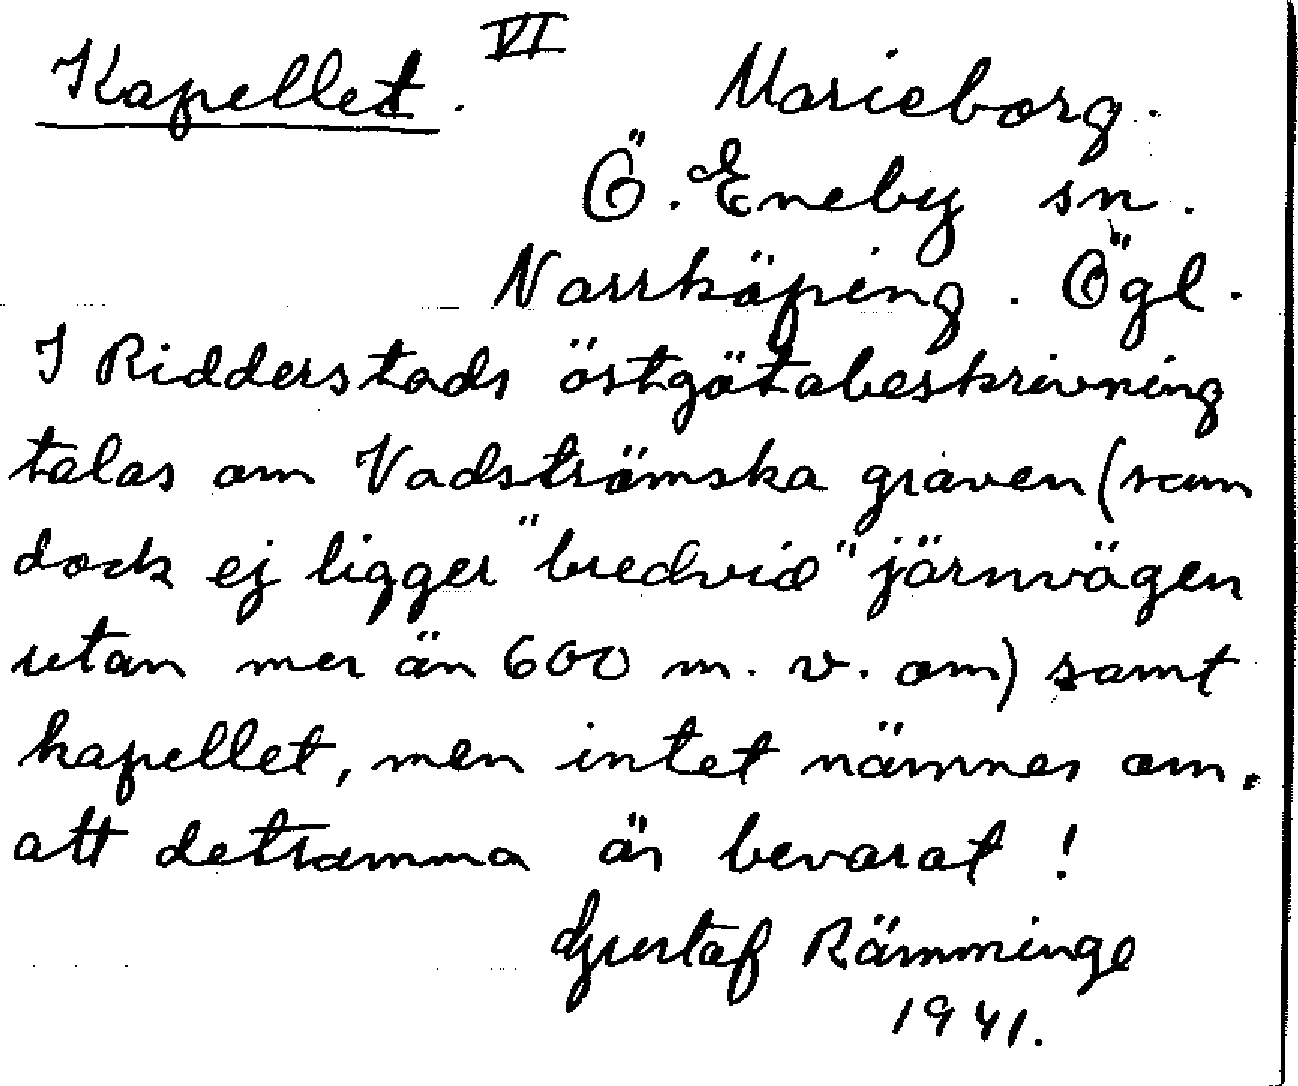 VI
Kapellet. Marieborg.
Ö. Eneby sn.
Norrköping. Ögl.
I Ridderstads östgötabeskrivning
talas om Vadströmska graven (som
dock ej ligger "bredvid" järnvägen
utan mer än 600 m. v. om) samt
kapellet, men intet nämnes om,
att detsamma är bevarat!
Gustaf Rämminge
1941.